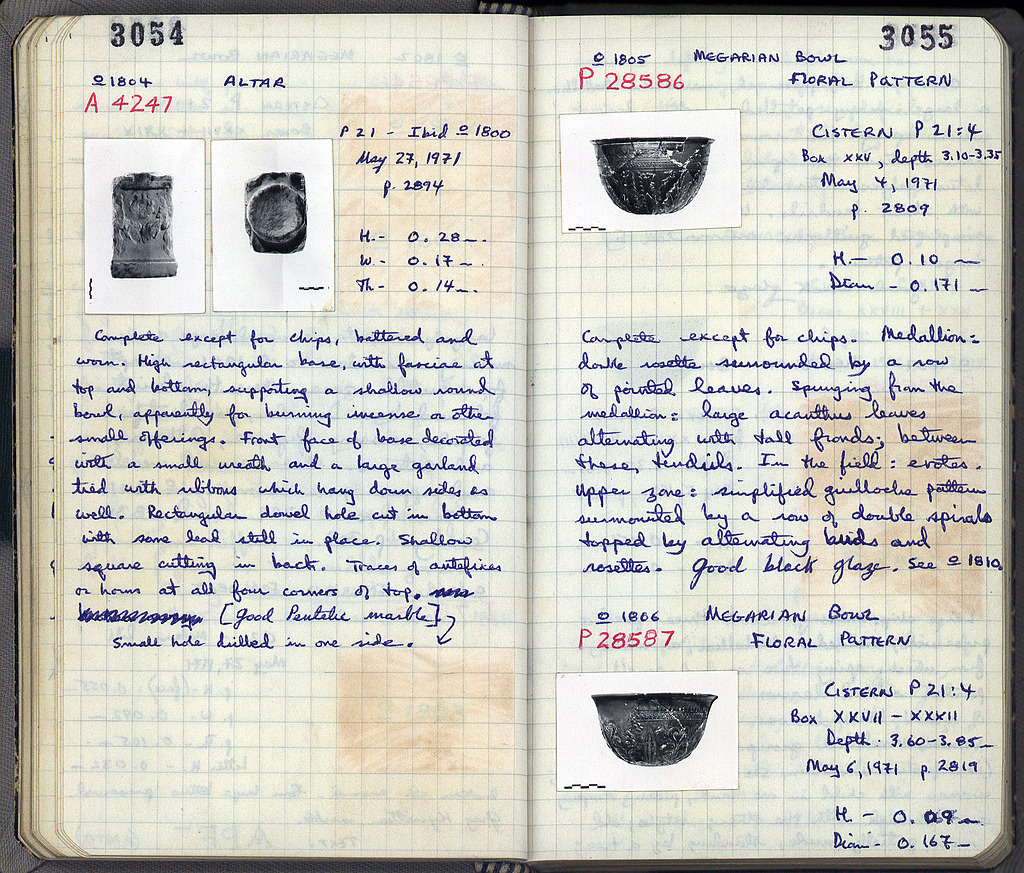 3054
o 1804 ALTAR
A 4247
P 21 - Ibid o 1800
May 27, 1971
p. 2894
H. - 0.28 m.
W. - 0.17 m.
Th - 0.14 m.
Complete except for chips, battered and
worn. High rectangular base, with fasciae at
top and bottom, supporting a shallow round
bowl, apparently for burning incense or other
small offerings. Front face of base decorated
with a small wreath and a large garland
tied with ribbons which hang down sides as
well. Rectangular dowel hole cut in bottom
with some lead still in place. Shallow
square cutting in back. Traces of antefixes
or horns at all four corners of top.
[Good Pentelic marble]
Small hole drilled in one side.
3055
o 1805 MEGARIAN BOWL
P 28586 FLORAL PATTERN
CISTERN P 21:4
Box XXV, depth 3.10-3.35
May 4, 1971
p. 2809
H. - 0.10 m
Diam - 0.171 m
Complete except for chips. Medallion:
double rosette surrounded by a row
of pointed leaves. Springing from the
medallion: large acanthus leaves
alternating with tall fronds; between
these, tendrils. In the field: erotes.
Upper zone: simplified guilloche pattern
surmounted by a row of double spirals
topped by alternating buds and
rosettes. Good black glaze. See o 1810.
o 1806 MEGARIAN BOWL
P 28587 FLORAL PATTERN
CISTERN P 21:4
Box XXVII - XXXII
Depth: 3.60-3.85 m
May 6, 1971 p. 2819
H. - 0.09 m.
Diam - 0.167 m